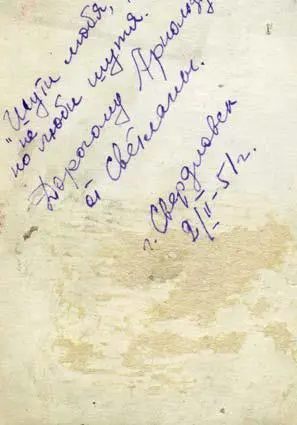 "Шути любя,
но не люби шутя.
Дорогому Арнольду
от Светланы.
г. Свердловск
2/II-51г.